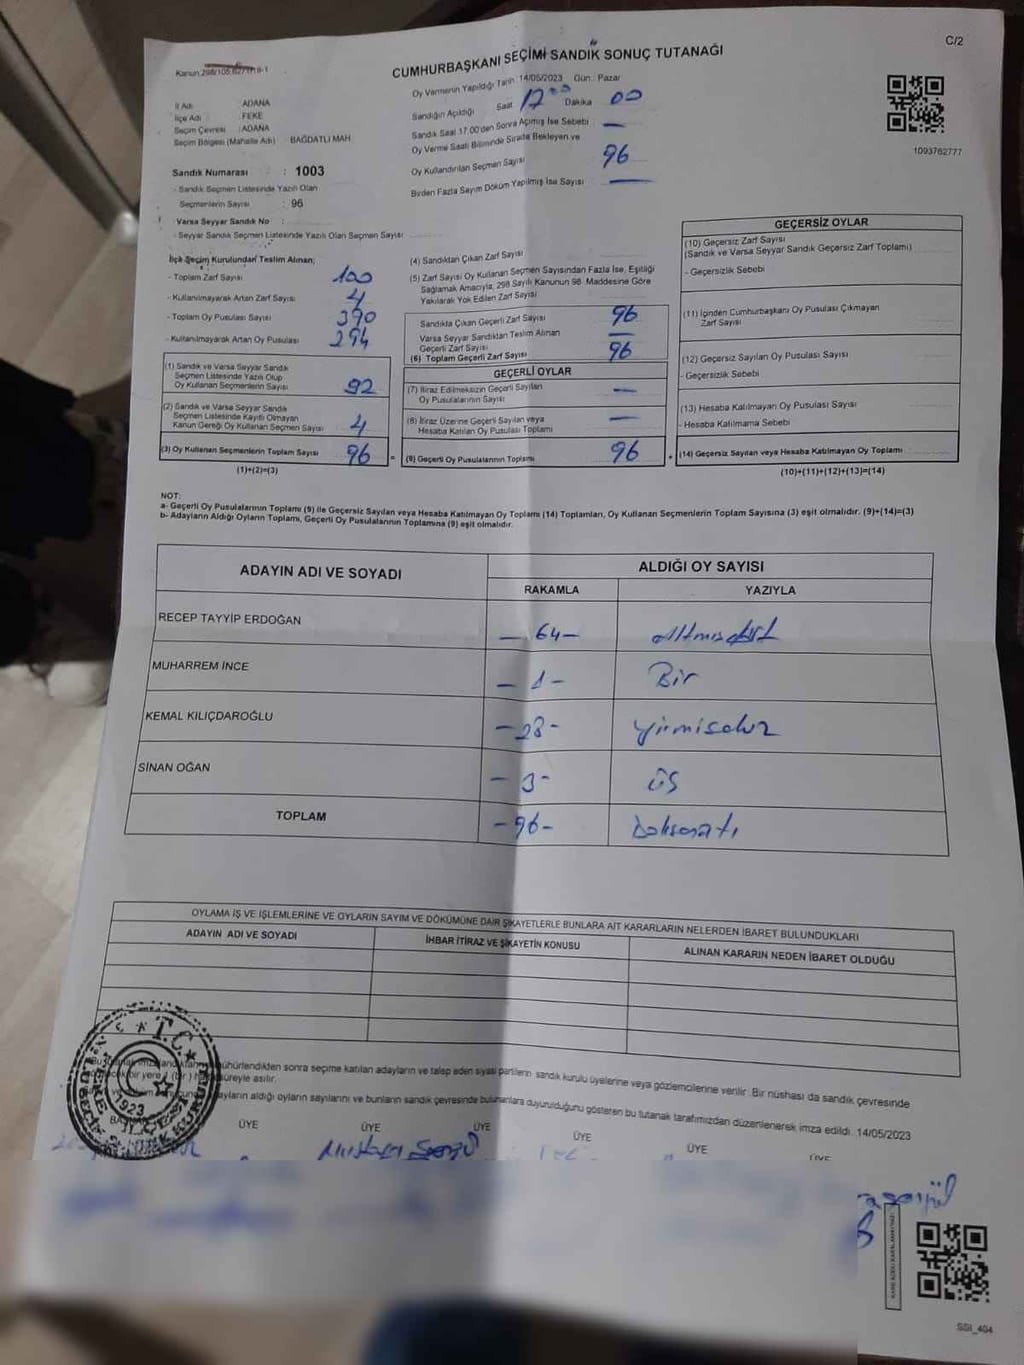 C/2
CUMHURBAŞKANI SEÇİMİ SANDIK SONUÇ TUTANAĞI
Oy Vermenin Yapıldığı Tarih 14/05/2023 Gün : Pazar
Sandığın Açıldığı Saat 17 00 Dakika 00
Sandık Saat 17.00'den Sonra Açılmış İse Sebebi —
Oy Verme Saati Bitiminde Sırada Bekleyen ve
Oy Kullandırılan Seçmen Sayısı 96
Birden Fazla Sayım Döküm Yapılmış İse Sayısı —
1093762777
İl Adı ADANA
İlçe Adı : FEKE
Seçim Çevresi : ADANA
Seçim Bölgesi (Mahalle Adı) BAĞDATLI MAH.
Sandık Numarası : 1003
- Sandık Seçmen Listesinde Yazılı Olan
Seçmenlerin Sayısı : 96
Varsa Seyyar Sandık No :
- Seyyar Sandık Seçmen Listesinde Yazılı Olan Seçmen Sayısı
İlçe Seçim Kurulundan Teslim Alınan;
- Toplam Zarf Sayısı 100
- Kullanılmayarak Artan Zarf Sayısı 4
- Toplam Oy Pusulası Sayısı 390
- Kullanılmayarak Artan Oy Pusulası 294
(1) Sandık ve Varsa Seyyar Sandık
Seçmen Listesinde Yazılı Olup
Oy Kullanan Seçmenlerin Sayısı 92
(2) Sandık ve Varsa Seyyar Sandık
Seçmen Listesinde Kayıtlı Olmayan
Kanun Gereği Oy Kullanan Seçmen Sayısı 4
(3) Oy Kullanan Seçmenlerin Toplam Sayısı 96
(1)+(2)=(3)
(4) Sandıktan Çıkan Zarf Sayısı
(5) Zarf Sayısı Oy Kullanan Seçmen Sayısından Fazla İse, Eşitliği
Sağlamak Amacıyla, 298 Sayılı Kanunun 98. Maddesine Göre
Yakılarak Yok Edilen Zarf Sayısı
Sandıkta Çıkan Geçerli Zarf Sayısı 96
Varsa Seyyar Sandıktan Teslim Alınan
Geçerli Zarf Sayısı —
(6) Toplam Geçerli Zarf Sayısı 96
GEÇERLİ OYLAR
(7) İtiraz Edilmeksizin Geçerli Sayılan
Oy Pusulalarının Sayısı —
(8) İtiraz Üzerine Geçerli Sayılan veya
Hesaba Katılan Oy Pusulası Toplamı —
(9) Geçerli Oy Pusulalarının Toplamı 96
GEÇERSİZ OYLAR
(10) Geçersiz Zarf Sayısı
(Sandık ve Varsa Seyyar Sandık Geçersiz Zarf Toplamı)
- Geçersizlik Sebebi
(11) İçinden Cumhurbaşkanı Oy Pusulası Çıkmayan
Zarf Sayısı
(12) Geçersiz Sayılan Oy Pusulası Sayısı
- Geçersizlik Sebebi
(13) Hesaba Katılmayan Oy Pusulası Sayısı
- Hesaba Katılmama Sebebi
(14) Geçersiz Sayılan veya Hesaba Katılmayan Oy Toplamı
(10)+(11)+(12)+(13)=(14)
NOT:
a- Geçerli Oy Pusulalarının Toplamı (9) ile Geçersiz Sayılan veya Hesaba Katılmayan Oy Toplamı (14) Toplamları, Oy Kullanan Seçmenlerin Toplam Sayısına (3) eşit olmalıdır. (9)+(14)=(3)
b- Adayların Aldığı Oyların Toplamı, Geçerli Oy Pusulalarının Toplamına (9) eşit olmalıdır.
ADAYIN ADI VE SOYADI
ALDIĞI OY SAYISI
RAKAMLA YAZIYLA
RECEP TAYYİP ERDOĞAN — 64 — altmışdört
MUHARREM İNCE — 1 — Bir
KEMAL KILIÇDAROĞLU — 28 — yirmisekiz
SİNAN OĞAN — 3 — üş
TOPLAM — 96 — Doksanaltı
OYLAMA İŞ VE İŞLEMLERİNE VE OYLARIN SAYIM VE DÖKÜMÜNE DAİR ŞİKAYETLERLE BUNLARA AİT KARARLARIN NELERDEN İBARET BULUNDUKLARI
ADAYIN ADI VE SOYADI
İHBAR İTİRAZ VE ŞİKAYETİN KONUSU
ALINAN KARARIN NEDEN İBARET OLDUĞU
T.C.
1923
mühürlendikten sonra seçime katılan adayların ve talep eden siyasi partilerin sandık kurulu üyelerine veya gözlemcilerine verilir. Bir nüshası da sandık çevresinde
bir yere 1 (bir) süreyle asılır.
aldığı oyların sayılarını ve bunların sandık çevresinde bulunanlara duyurulduğunu gösteren bu tutanak tarafımızdan düzenlenerek imza edildi. 14/05/2023
ÜYE ÜYE ÜYE ÜYE ÜYE ÜYE
SSI_404